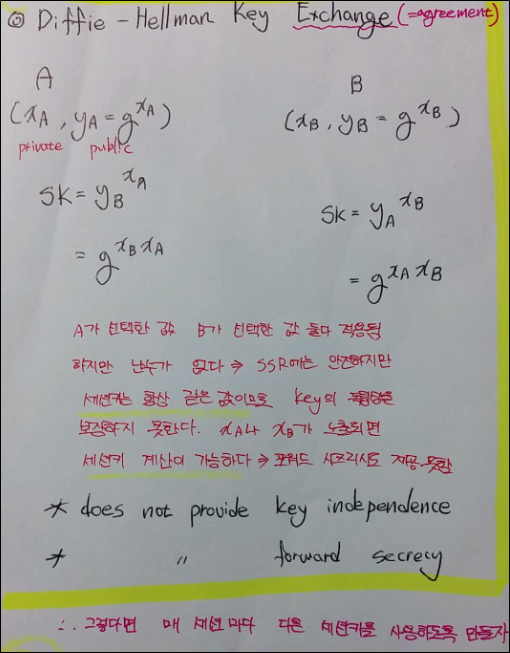 ◎ Diffie-Hellman Key Exchange (=agreement)
A B
(xA, yA = g^xA) (xB, yB = g^xB)
private public
SK = yB^xA SK = yA^xB
= g^xB xA = g^xA xB
A가 선택한 값 B가 선택한 값 둘다 적용됨
하지만 난수가 없다 → SSR에는 안전하지만
세션키는 항상 같은 값이므로 key의 독립성을
보장하지 못한다. xA나 xB가 노출되면
세션키 계산이 가능하다 → 포워드 시크리시도 제공 못함
* does not provide key independence
* 〃 forward secrecy
∴ 그렇다면 매 세션마다 다른 세션키를 사용하도록 만들자